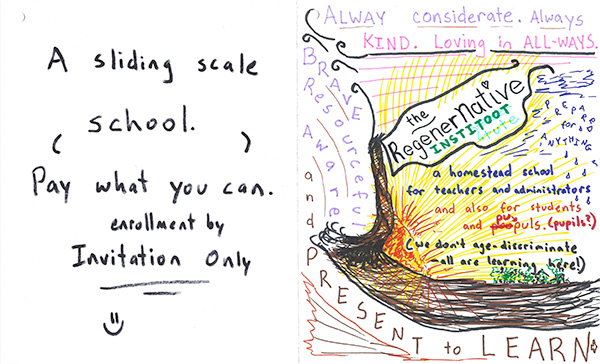 A sliding scale
school.
( )
Pay what you can.
enrollment by
Invitation Only
ALWAY considerate. Always
KIND. Loving in ALL-WAYS.
BRAVE
Resourceful
Aware
and
PRESENT to LEARN
the
RegenerNative
INSTITOOT
PREPA
for
ANYTHING
a homestead school
for teachers and administrators
and also for students
and pupuls. (pupils?)
(we don't age-discriminate
-all are learning here!)